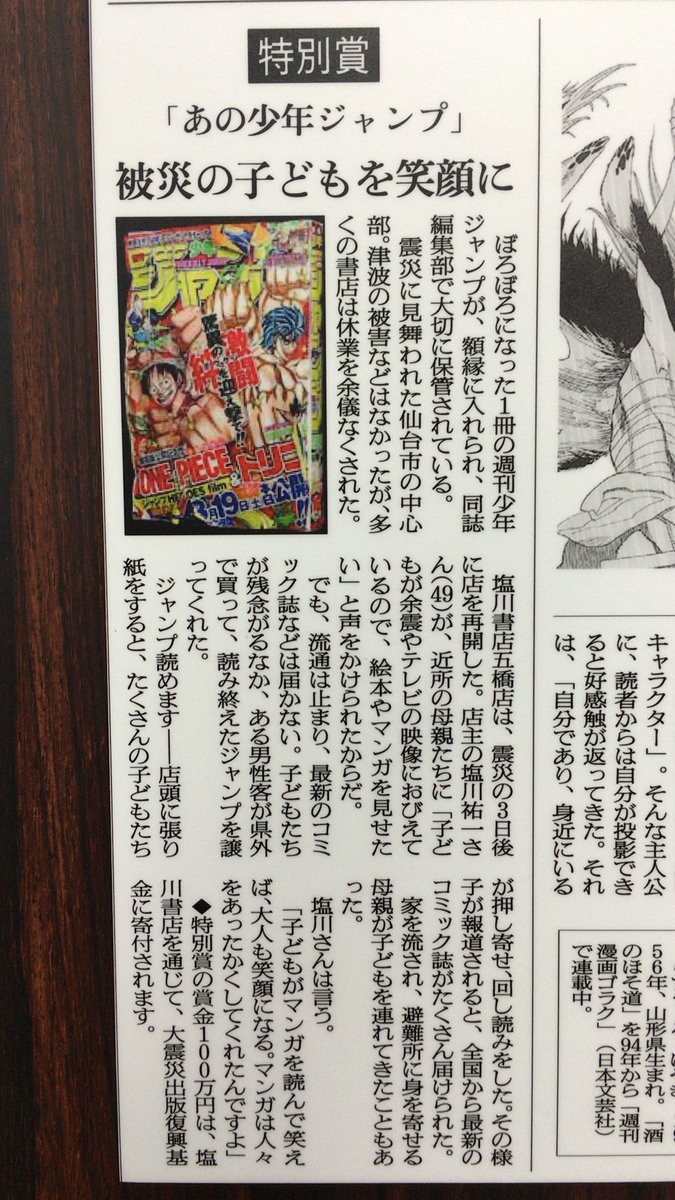 特別賞
「あの少年ジャンプ」
被災の子どもを笑顔に
ぼろぼろになった1冊の週刊少年
ジャンプが、額縁に入れられ、同誌
編集部で大切に保管されている。
震災に見舞われた仙台市の中心
部。津波の被害などはなかったが、多
くの書店は休業を余儀なくされた。
塩川書店五橋店は、震災の3日後
に店を再開した。店主の塩川祐一さ
ん(49)が、近所の母親たちに「子ど
もが余震やテレビの映像におびえて
いるので、絵本やマンガを見せた
い」と声をかけられたからだ。
でも、流通は止まり、最新のコミ
ック誌などは届かない。子どもたち
が残念がるなか、ある男性客が県外
で買って、読み終えたジャンプを譲
ってくれた。
ジャンプ読めます――店頭に張り
紙をすると、たくさんの子どもたち
が押し寄せ、回し読みをした。その様
子が報道されると、全国から最新の
コミック誌がたくさん届けられた。
家を流され、避難所に身を寄せる
母親が子どもを連れてきたこともあ
った。
塩川さんは言う。
「子どもがマンガを読んで笑え
ば、大人も笑顔になる。マンガは人々
をあったかくしてくれたんですよ」
◆特別賞の賞金100万円は、塩
川書店を通じて、大震災出版復興基
金に寄付されます。
ジャンプ
激闘
驚異の
絆
迎え撃て!!
ONE PIECE
&トリコ
ジャンプHEROES film
3月19日土公開!!
キャラクター」。そんな主人公
に、読者からは自分が投影でき
ると好感触が返ってきた。それ
は、「自分であり、身近にいる
56年、山形県生まれ。「酒
のほそ道」を94年から「週刊
漫画ゴラク」(日本文芸社)
で連載中。